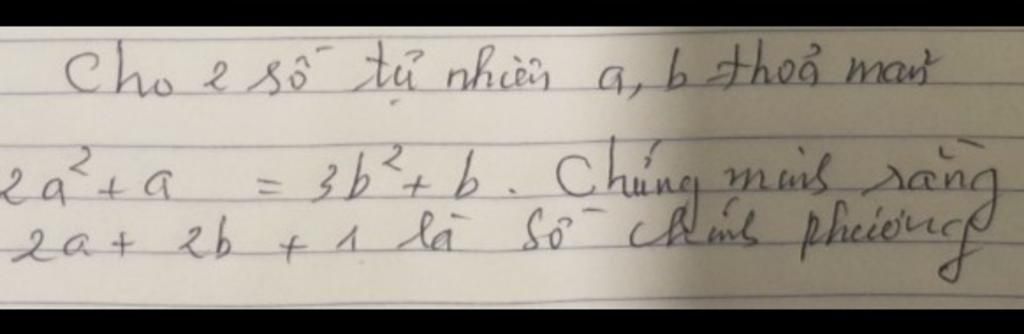 Cho 2 số tự nhiên a, b thoả mãn
2a² + a = 3b² + b. Chứng minh rằng
2a + 2b + 1 là số chính phương